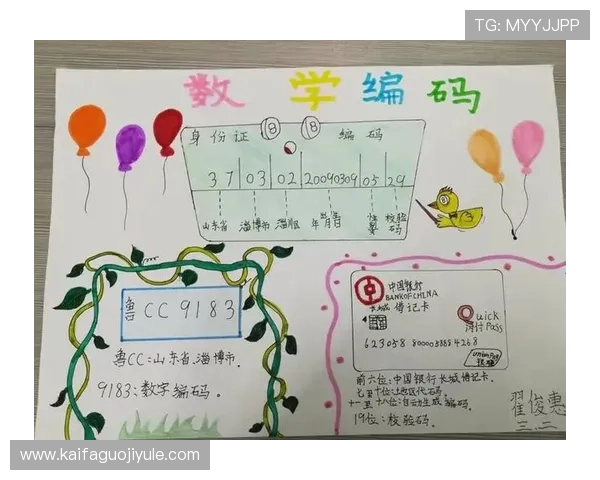 TG: MYYJJPP
数学编码
身份证 18 18 编码
37 03 02 20090309 05 29
山东省 淄博市 淄川区 年 校验码
鲁CC9183
鲁CC:山东省、淄博市、
9183:数字编码.
中国银行
BANK OF CHINA
长城 借记卡
Quick
闪付Pass
623058 80000 5888 4268
UnionPay
银联
前六位:中国银行长城借记卡.
七至十位:地区代码.
十一至十八位:自动生成编码.
19位:校验码.
翟俊惠
三.二
www.kaifaguojiyule.com